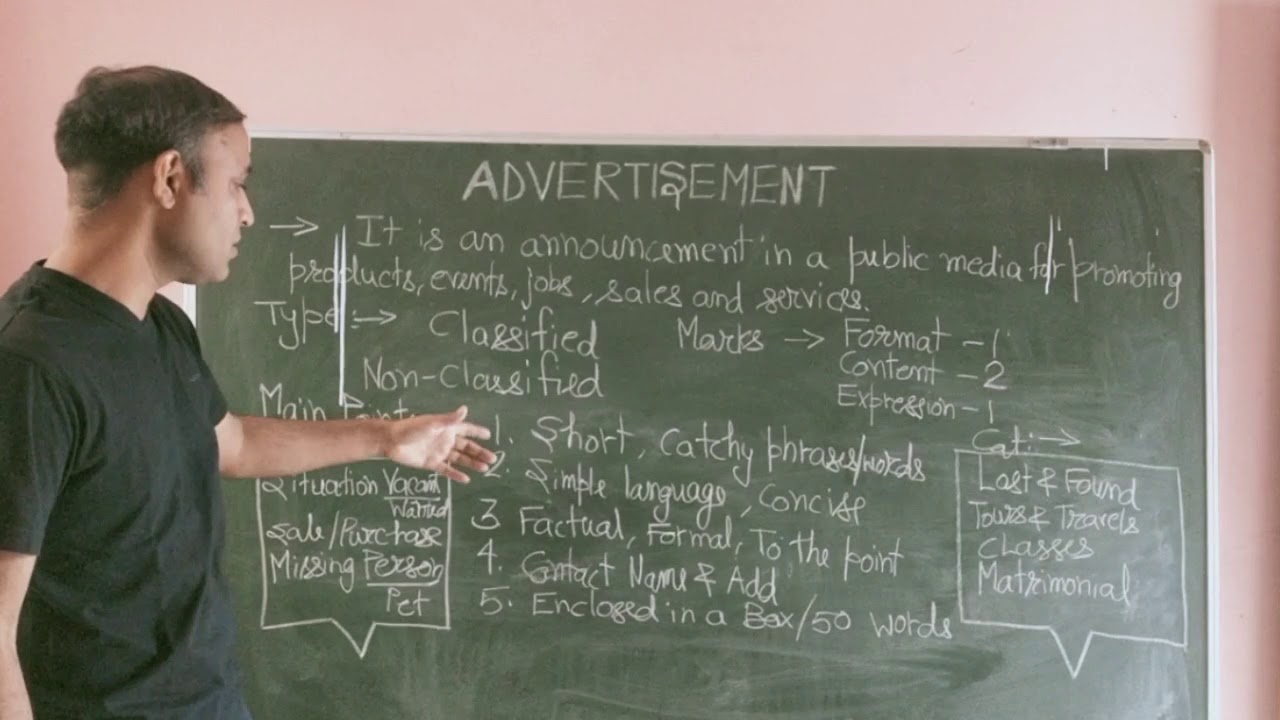 ADVERTISEMENT
→ It is an announcement in a public media for promoting
products, events, jobs, sales and services.
Type:→ Classified
Non-Classified
Marks → Format - 1
Content - 2
Expression - 1
Main Points
1. Short, Catchy phrases/words
2. Simple language, Concise
3 Factual, Formal, To the point
4. Contact Name & Add
5. Enclosed in a Box/50 words
Situation Vacant
Wanted
Sale/Purchase
Missing Person
Pet
Cat:→
Lost & Found
Tours & Travels
Classes
Matrimonial